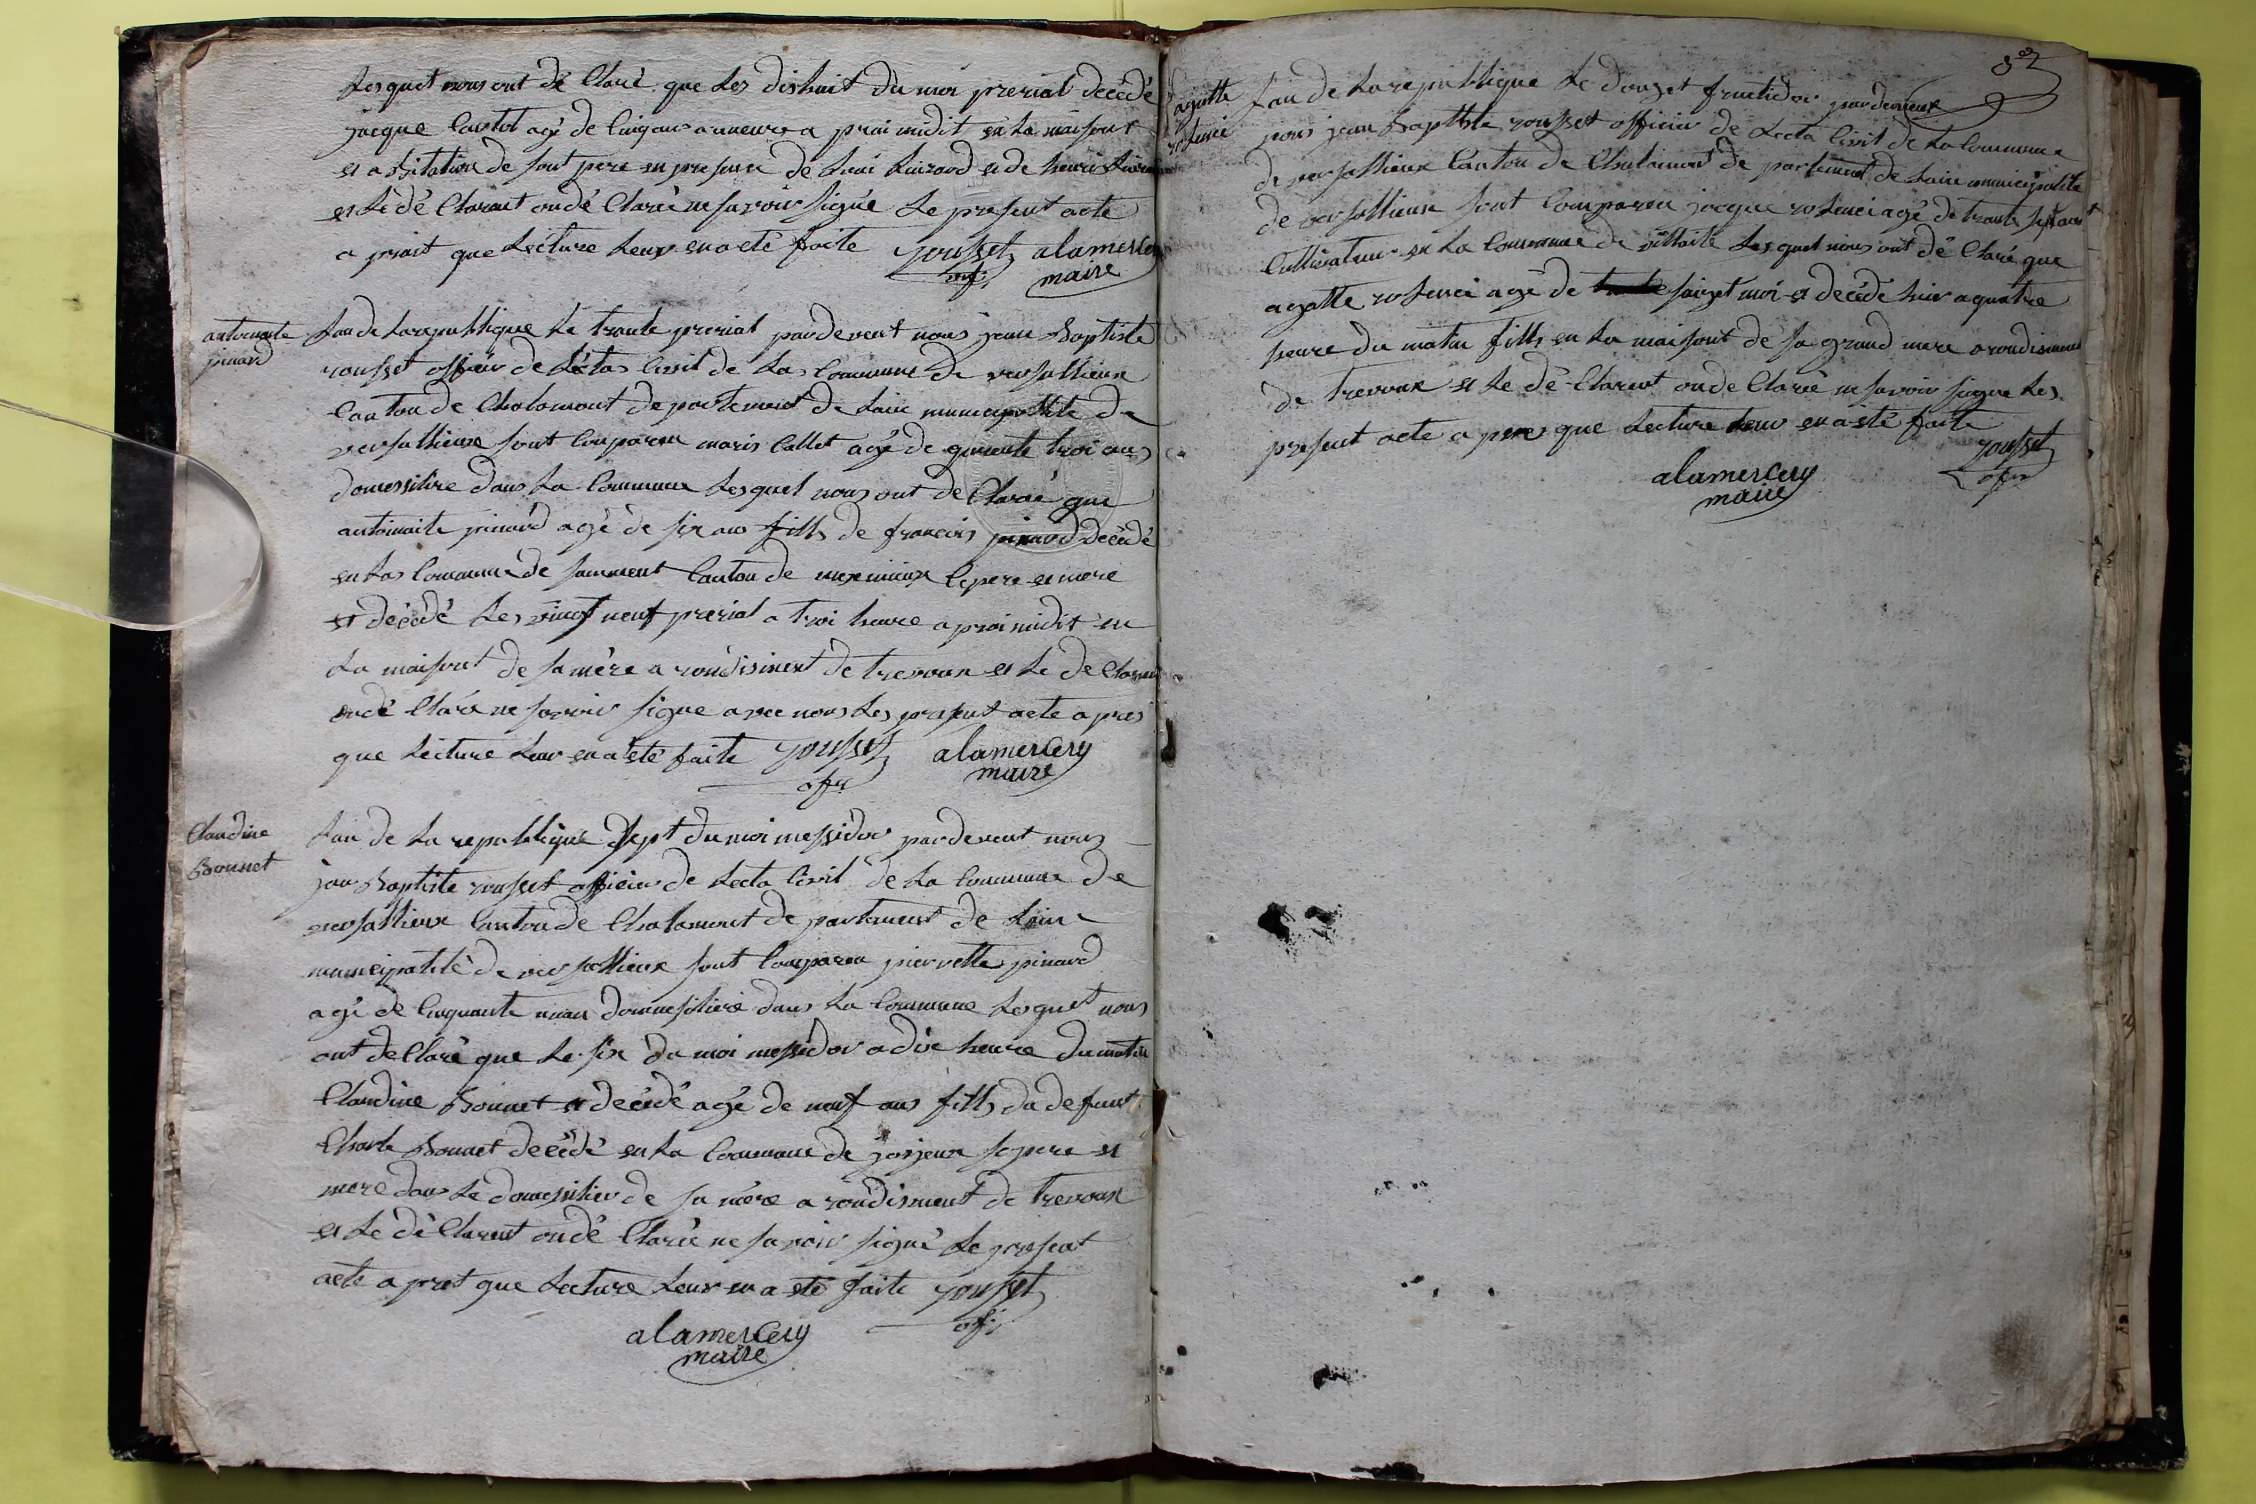 Lesquet nous ont dé Claré que Les dishuit du moi prerial decedé
jacque Cautot agé de Cinq ans a neure a prai midit en La maisont
et abitation de sont pere en presence de Luzard et de
et Le dé Clarant on dé Claré ne savoir signé Le present acte
a prait que Lecture Leur en a eté faite rousset alamercery
offi maire
antoinaite pinard
Lan de La republique Le trante prerial pardevent nous jean Baptiste
rousset officier de Léta Civil de Las Commune de versallieux
Canton de Chalamont departement de Lain municipallité de
versallieux sont Comparu maris Collet agé de quarente troi ans
domessilire dans La Commune Lesquel nous ont de Claré que
antoinaite pinard agé de six ans fills de francois pinard decedé
en Las Commune de Canton de meximieux Cepere et mere
et décédé Les vingt neuf prerial a troi heure a proi midit en
La maisont de sa mère a rondisiment de trevoux et Le de Clarent
ondé Claré ne savoir signe avec nous Les present acte apres
que Lecture Leur en a eté faite rousset alamercery
offi maire
Claudine
Bonnet
Lan de La republique sept du moi messidor pardevent nous
jean Baptiste rousset officier de Lecta Civil de La Commune de
versallieux Canton de Chalamont departement de Lain
municipalité de versallieux sont Comparu pierrette pinard
agé de Cinquante domessiliere dans La Commune Lesquet nous
ont de Claré que Le six du moi messidor a dix heure du matin
Claudine Bonnet et decédé agé de neuf ans fills du defunt
Charle Bonnet decédé en La Commune de joyeux sepere et
mere dans Le domessilier de sa mère a rondisment de trevoux
et Le dé Clarent ondé Claré ne savoir signé Le present
acte a pret que Lecture Leur en a eté faite rousset
offi
alamercery
maire
82
agatte
Lan de La republique Le douzet fructidor pardeveux
nous jean Baptiste rousset officier de Lecta Civil de La Commune
de versallieux Canton de Chalamont departement de Lain municipalité
de versallieux sont Comparu jacque agé de trante sept ans
Cultivateur en La Commune de villaite Lesquel nous ont dé Claré que
agatte agé de saizet moi et decédé hier a quatre
heure du matin fills en La maisont de sa grand mere a rondisiment
de trevoux et Le dé Clarent on de Claré ne savoir signe Les
present acte a pres que Lecture Leur en a eté faite
rousset
offi
alamercery
maire